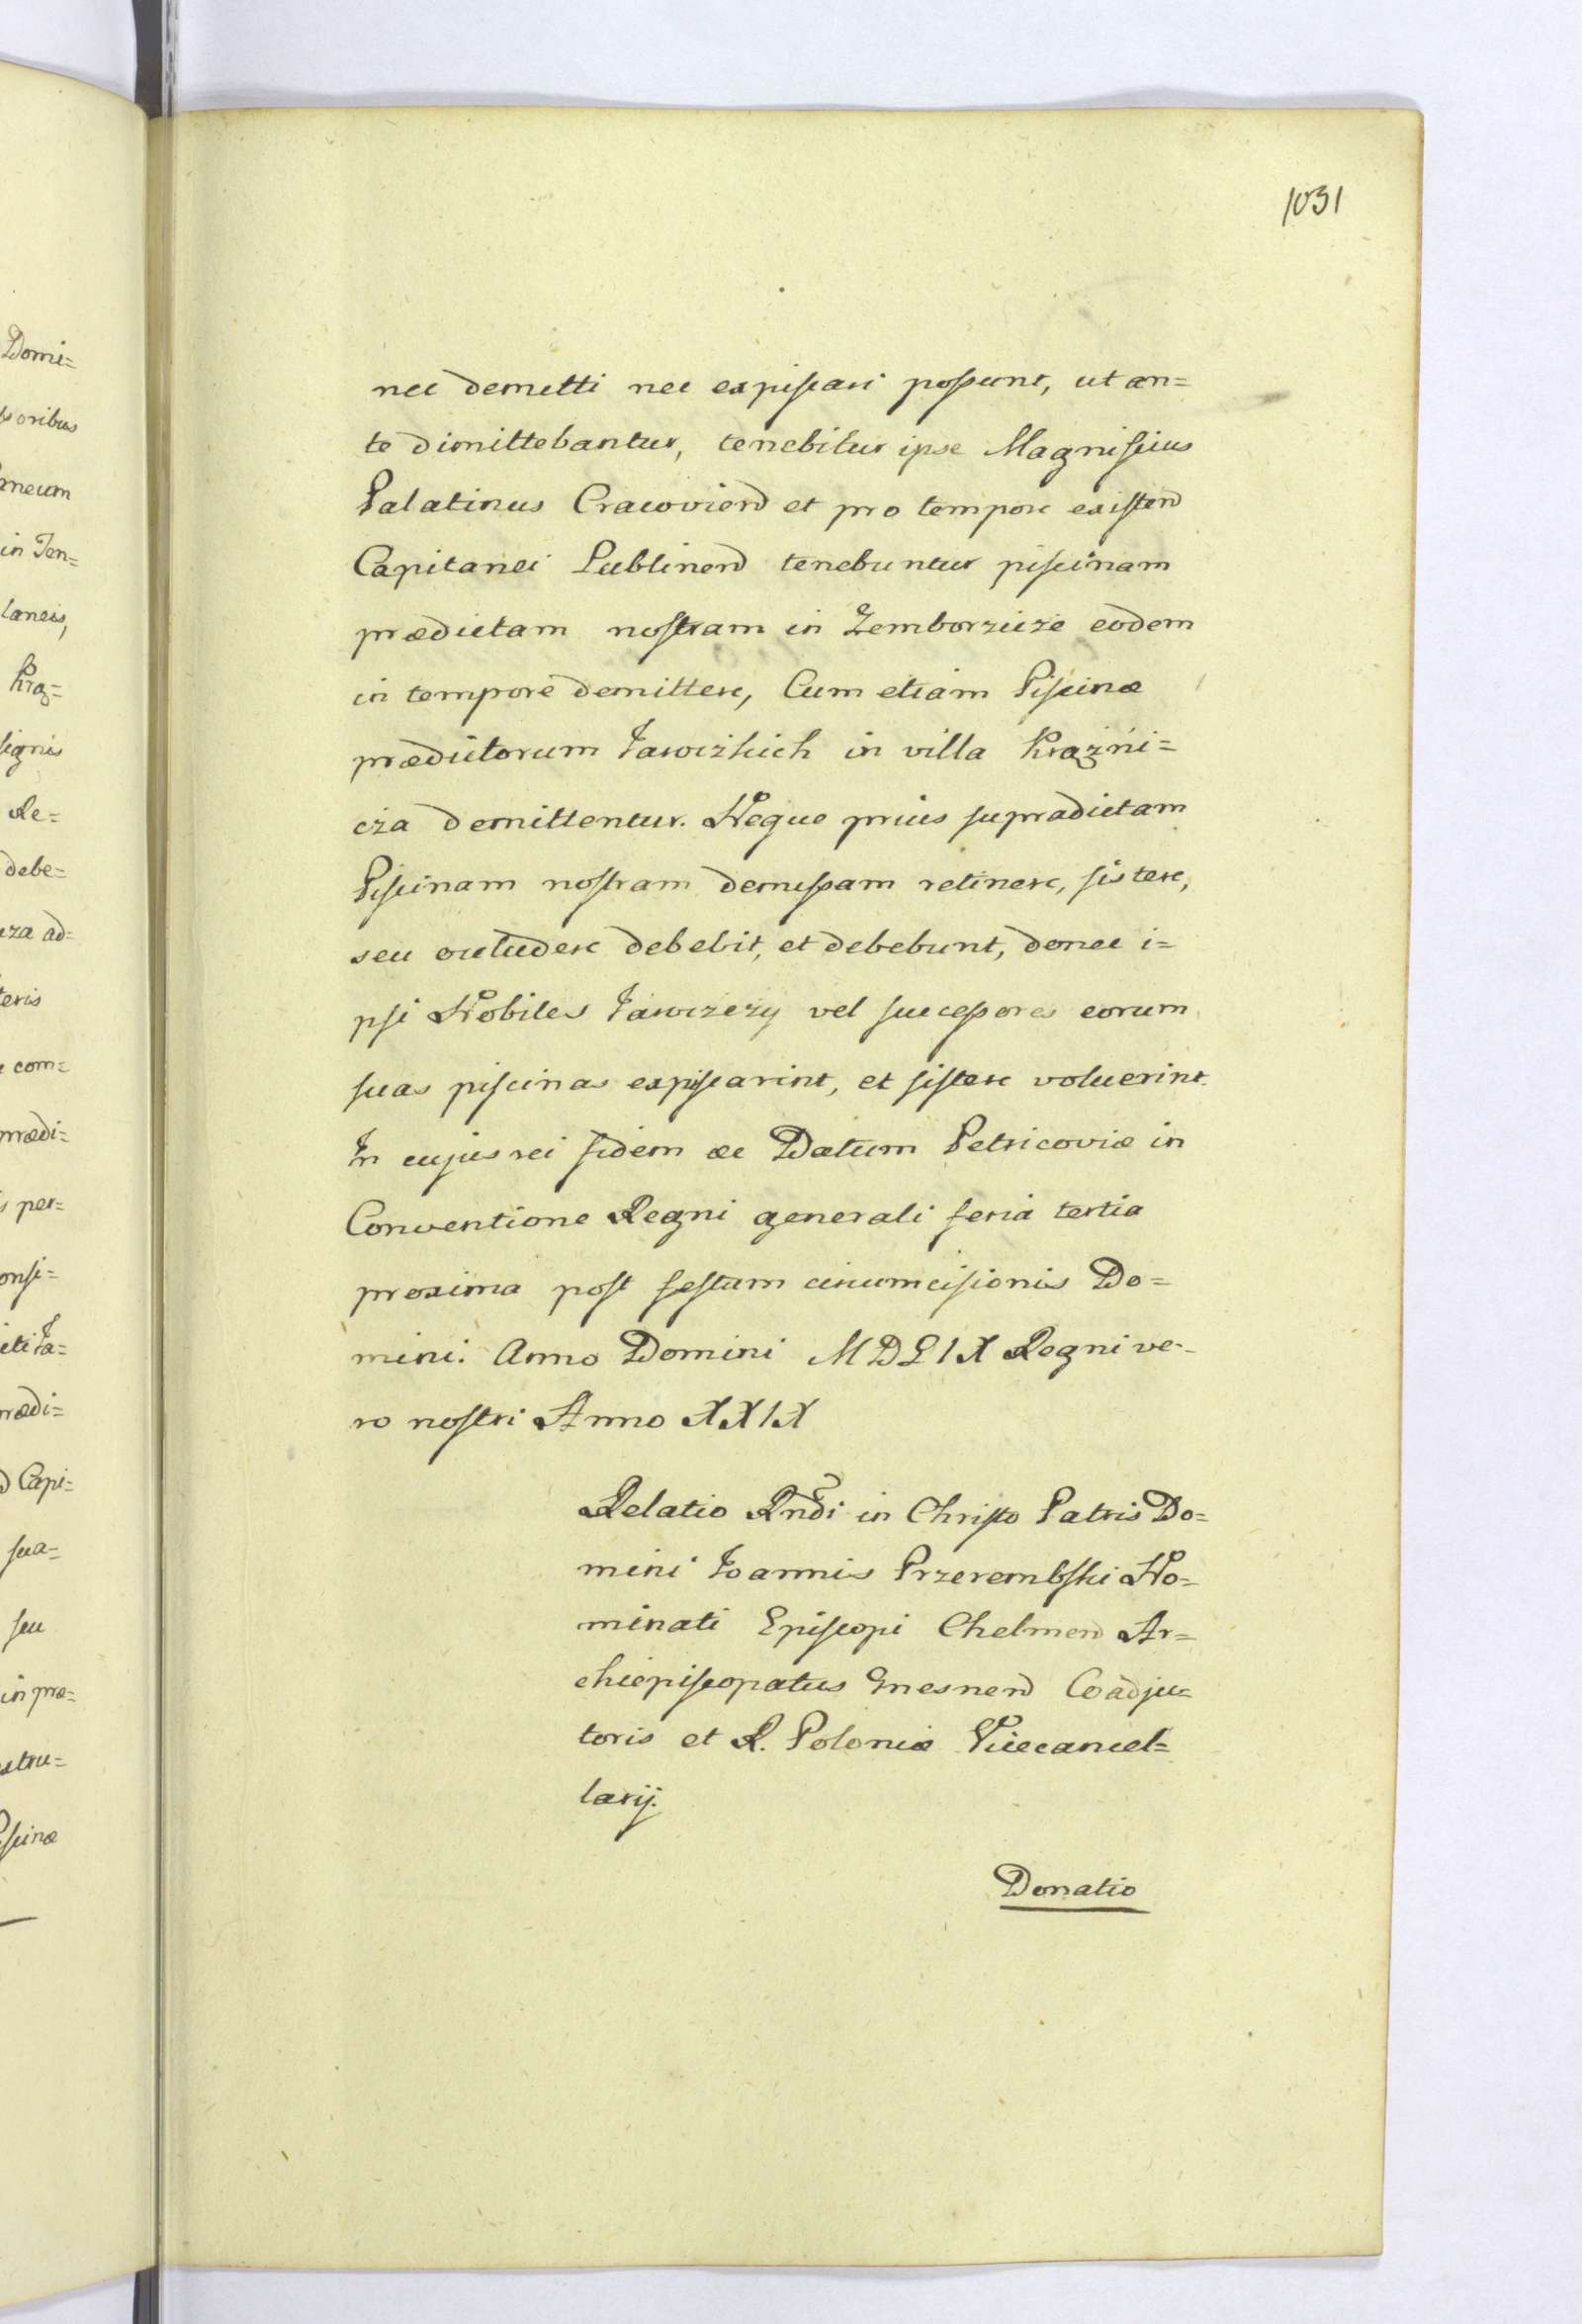 1031
nec demitti nec expiscari possunt, ut an=
te dimittebantur, tenebitur ipse Magnificus
Palatinus Cracovien et pro tempore existen
Capitanei Lublinen tenebuntur piscinam
prædictam nostram in Zemborzicze eodem
in tempore demittere, Cum etiam Piscinæ
prædictorum Jawczkich in villa Kraźni=
cza demittentur. Neque prius supradictam
Piscinam nostram demissam retinere, sistere,
seu occludere debebit, et debebunt, donec i=
psi Nobiles Jawczczy vel successores eorum
suas piscinas expiscarint, et sistere voluerint.
In cujus rei fidem ac Datum Petricoviæ in
Conventione Regni generali feria tertia
proxima post festum circumcisionis Do=
mini. Anno Domini MDLIX Regni ve=
ro nostri Anno XXIX
Relatio Rndi in Christo Patris Do=
mini Joannis Przerembski No=
minati Episcopi Chelmen Ar=
chiepiscopatus Gnesnen Coadju=
toris et R. Poloniæ Vicecancel=
larij.
Donatio
Domi=
soribus
aneum
in Ten=
laneis,
Kraz=
signis
Re=
debe=
cza ad=
teris
com=
prædi=
per=
onsi=
cti Ja=
rædi=
Capi=
sua=
seu
in præ=
stru=
Piscinæ